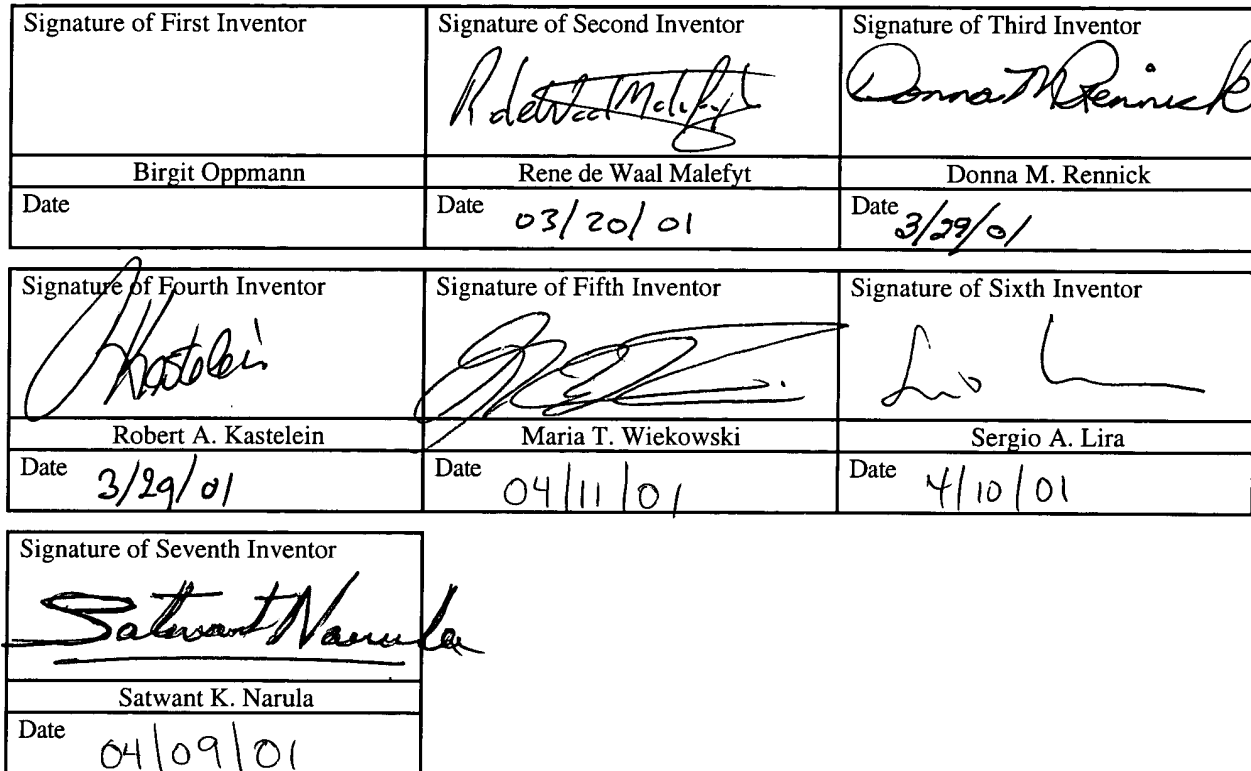 Signature of First Inventor
Signature of Second Inventor
Signature of Third Inventor
R de Waal Malefyt
Donna M Rennick
Birgit Oppmann
Rene de Waal Malefyt
Donna M. Rennick
Date
Date 03/20/01
Date 3/29/01
Signature of Fourth Inventor
Signature of Fifth Inventor
Signature of Sixth Inventor
Kastelein
Robert A. Kastelein
Maria T. Wiekowski
Sergio A. Lira
Date 3/29/01
Date 04/11/01
Date 4/10/01
Signature of Seventh Inventor
Satwant Narula
Satwant K. Narula
Date 04/09/01